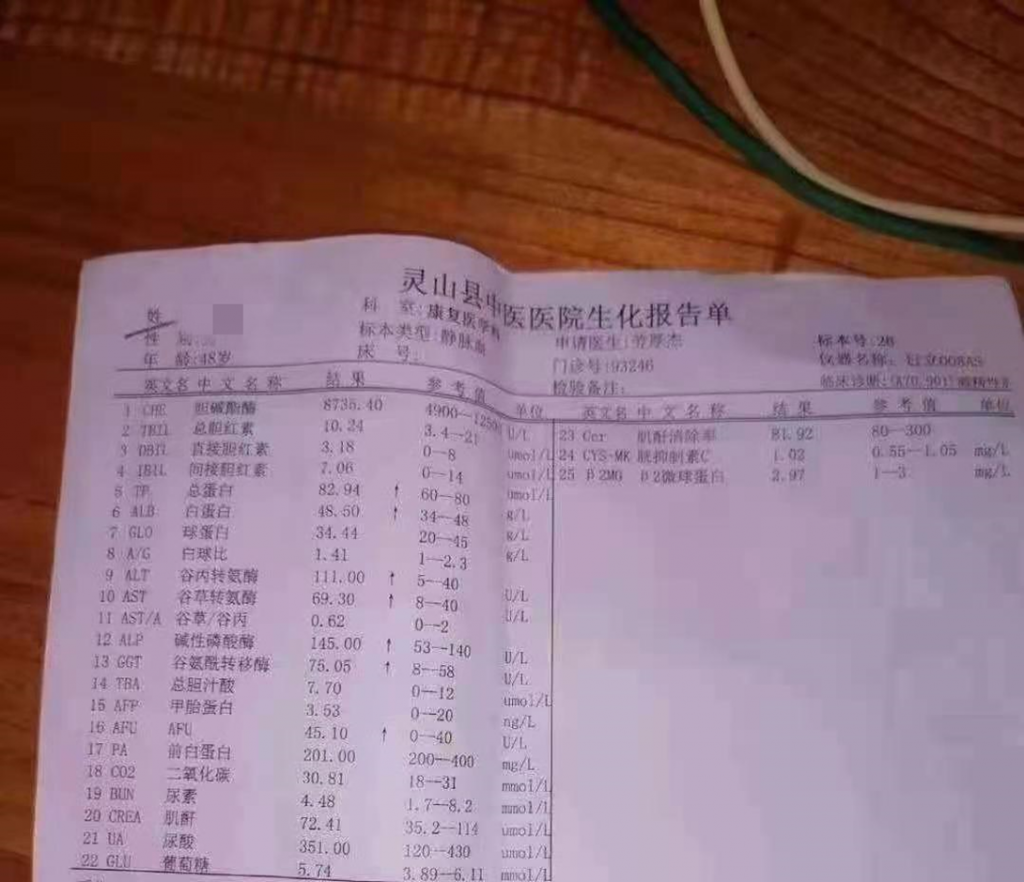 灵山县中医医院生化报告单
姓
科 室:康复医学科
申请医生:劳厚杰
标本号:26
性
标本类型:静脉血
门诊号:93246
仪器名称: 日立008AS
年 龄:48岁
床 号:
检验备注:
临床诊断:(A70.901)
英文名 中文名称 结果 参考值 单位
1 CHE 胆碱酯酶 8735.40 4900--12500 U/L
2 TBIL 总胆红素 10.24 3.4--21 umol/L
3 DBIL 直接胆红素 3.18 0--8 umol/L
4 IBIL 间接胆红素 7.06 0--14 umol/L
5 TP 总蛋白 82.94 ↑ 60--80 g/L
6 ALB 白蛋白 48.50 ↑ 34--48 g/L
7 GLO 球蛋白 34.44 20--45 g/L
8 A/G 白球比 1.41 1--2.3
9 ALT 谷丙转氨酶 111.00 ↑ 5--40 U/L
10 AST 谷草转氨酶 69.30 ↑ 8--40 U/L
11 AST/A 谷草/谷丙 0.62 0--2
12 ALP 碱性磷酸酶 145.00 ↑ 53--140 U/L
13 GGT 谷氨酰转移酶 75.05 ↑ 8--58 U/L
14 TBA 总胆汁酸 7.70 0--12 umol/L
15 AFP 甲胎蛋白 3.53 0--20 ng/L
16 AFU AFU 45.10 ↑ 0--40 U/L
17 PA 前白蛋白 201.00 200--400 mg/L
18 CO2 二氧化碳 30.81 18--31 mmol/L
19 BUN 尿素 4.48 1.7--8.2 mmol/L
20 CREA 肌酐 72.41 35.2--114 umol/L
21 UA 尿酸 351.00 120--430 umol/L
22 GLU 葡萄糖 5.74 3.89--6.11 mmol/L
英文名 中文名称 结果 参考值 单位
23 Ccr 肌酐清除率 81.92 80--300
24 CYS-MK 胱抑制素C 1.02 0.55--1.05 mg/L
25 β2MG β2微球蛋白 2.97 1--3 mg/L